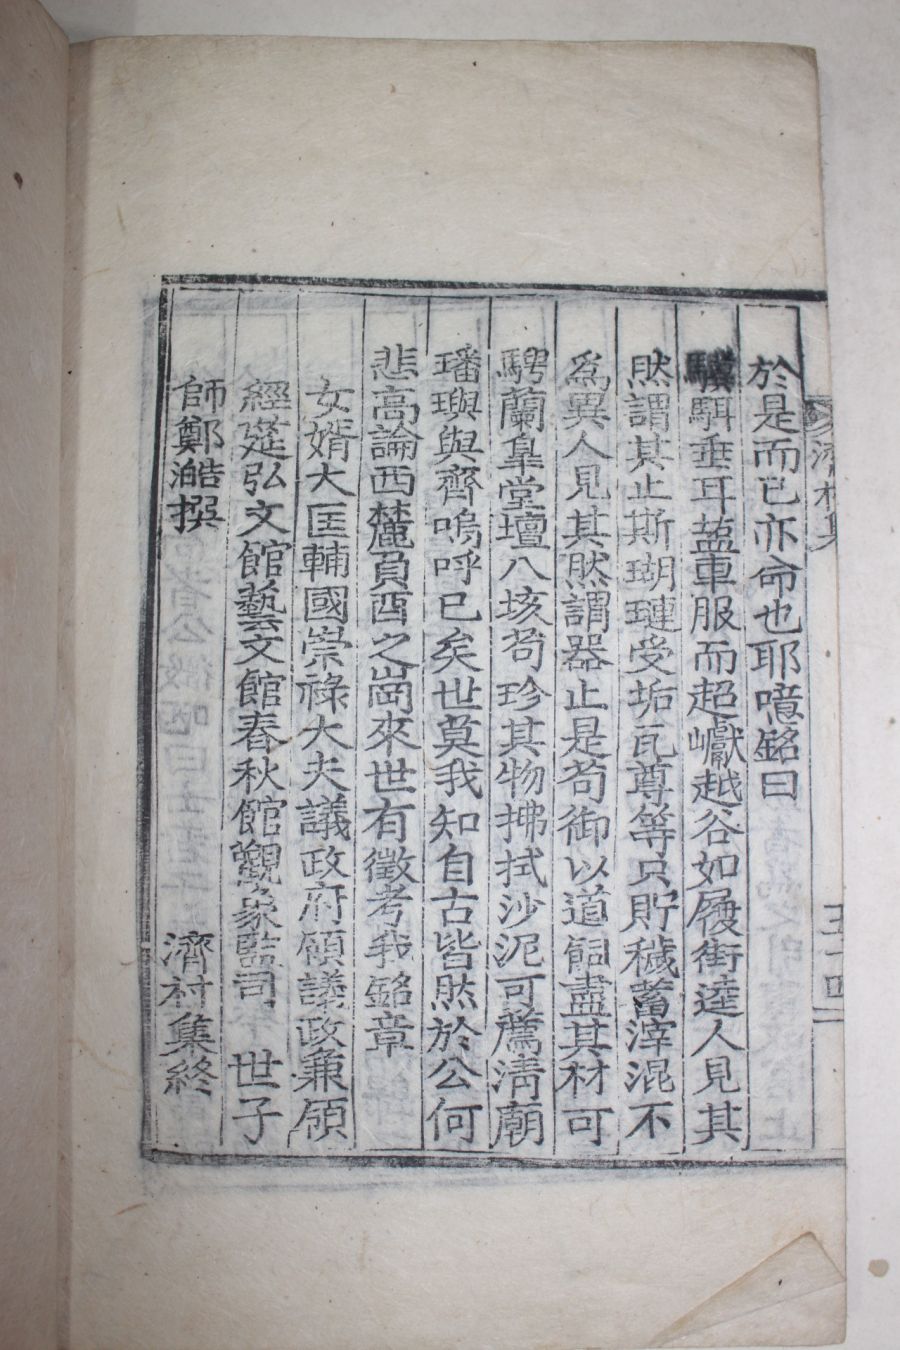 濟村集
五十四
於是而已亦命也耶噫銘曰
驥駬垂耳蓋車服而超巘越谷如履街逵人見其
然謂其止斯瑚璉受垢瓦尊等只貯穢蓄滓混不
爲異人見其然謂器止是苟御以道飼盡其材可
騁蘭皐堂壇八垓苟珍其物拂拭沙泥可薦淸廟
璠璵與齊嗚呼已矣世莫我知自古皆然於公何
悲高論西麓負酉之崗來世有徵考我銘章
女婿大匡輔國崇祿大夫議政府領議政兼領
經筵弘文館藝文館春秋館觀象監司 世子
師鄭澔撰
濟村集終